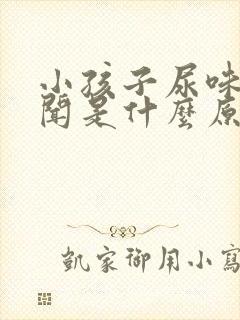 小孩子尿味
聞是什麼原
凱家御用小寫